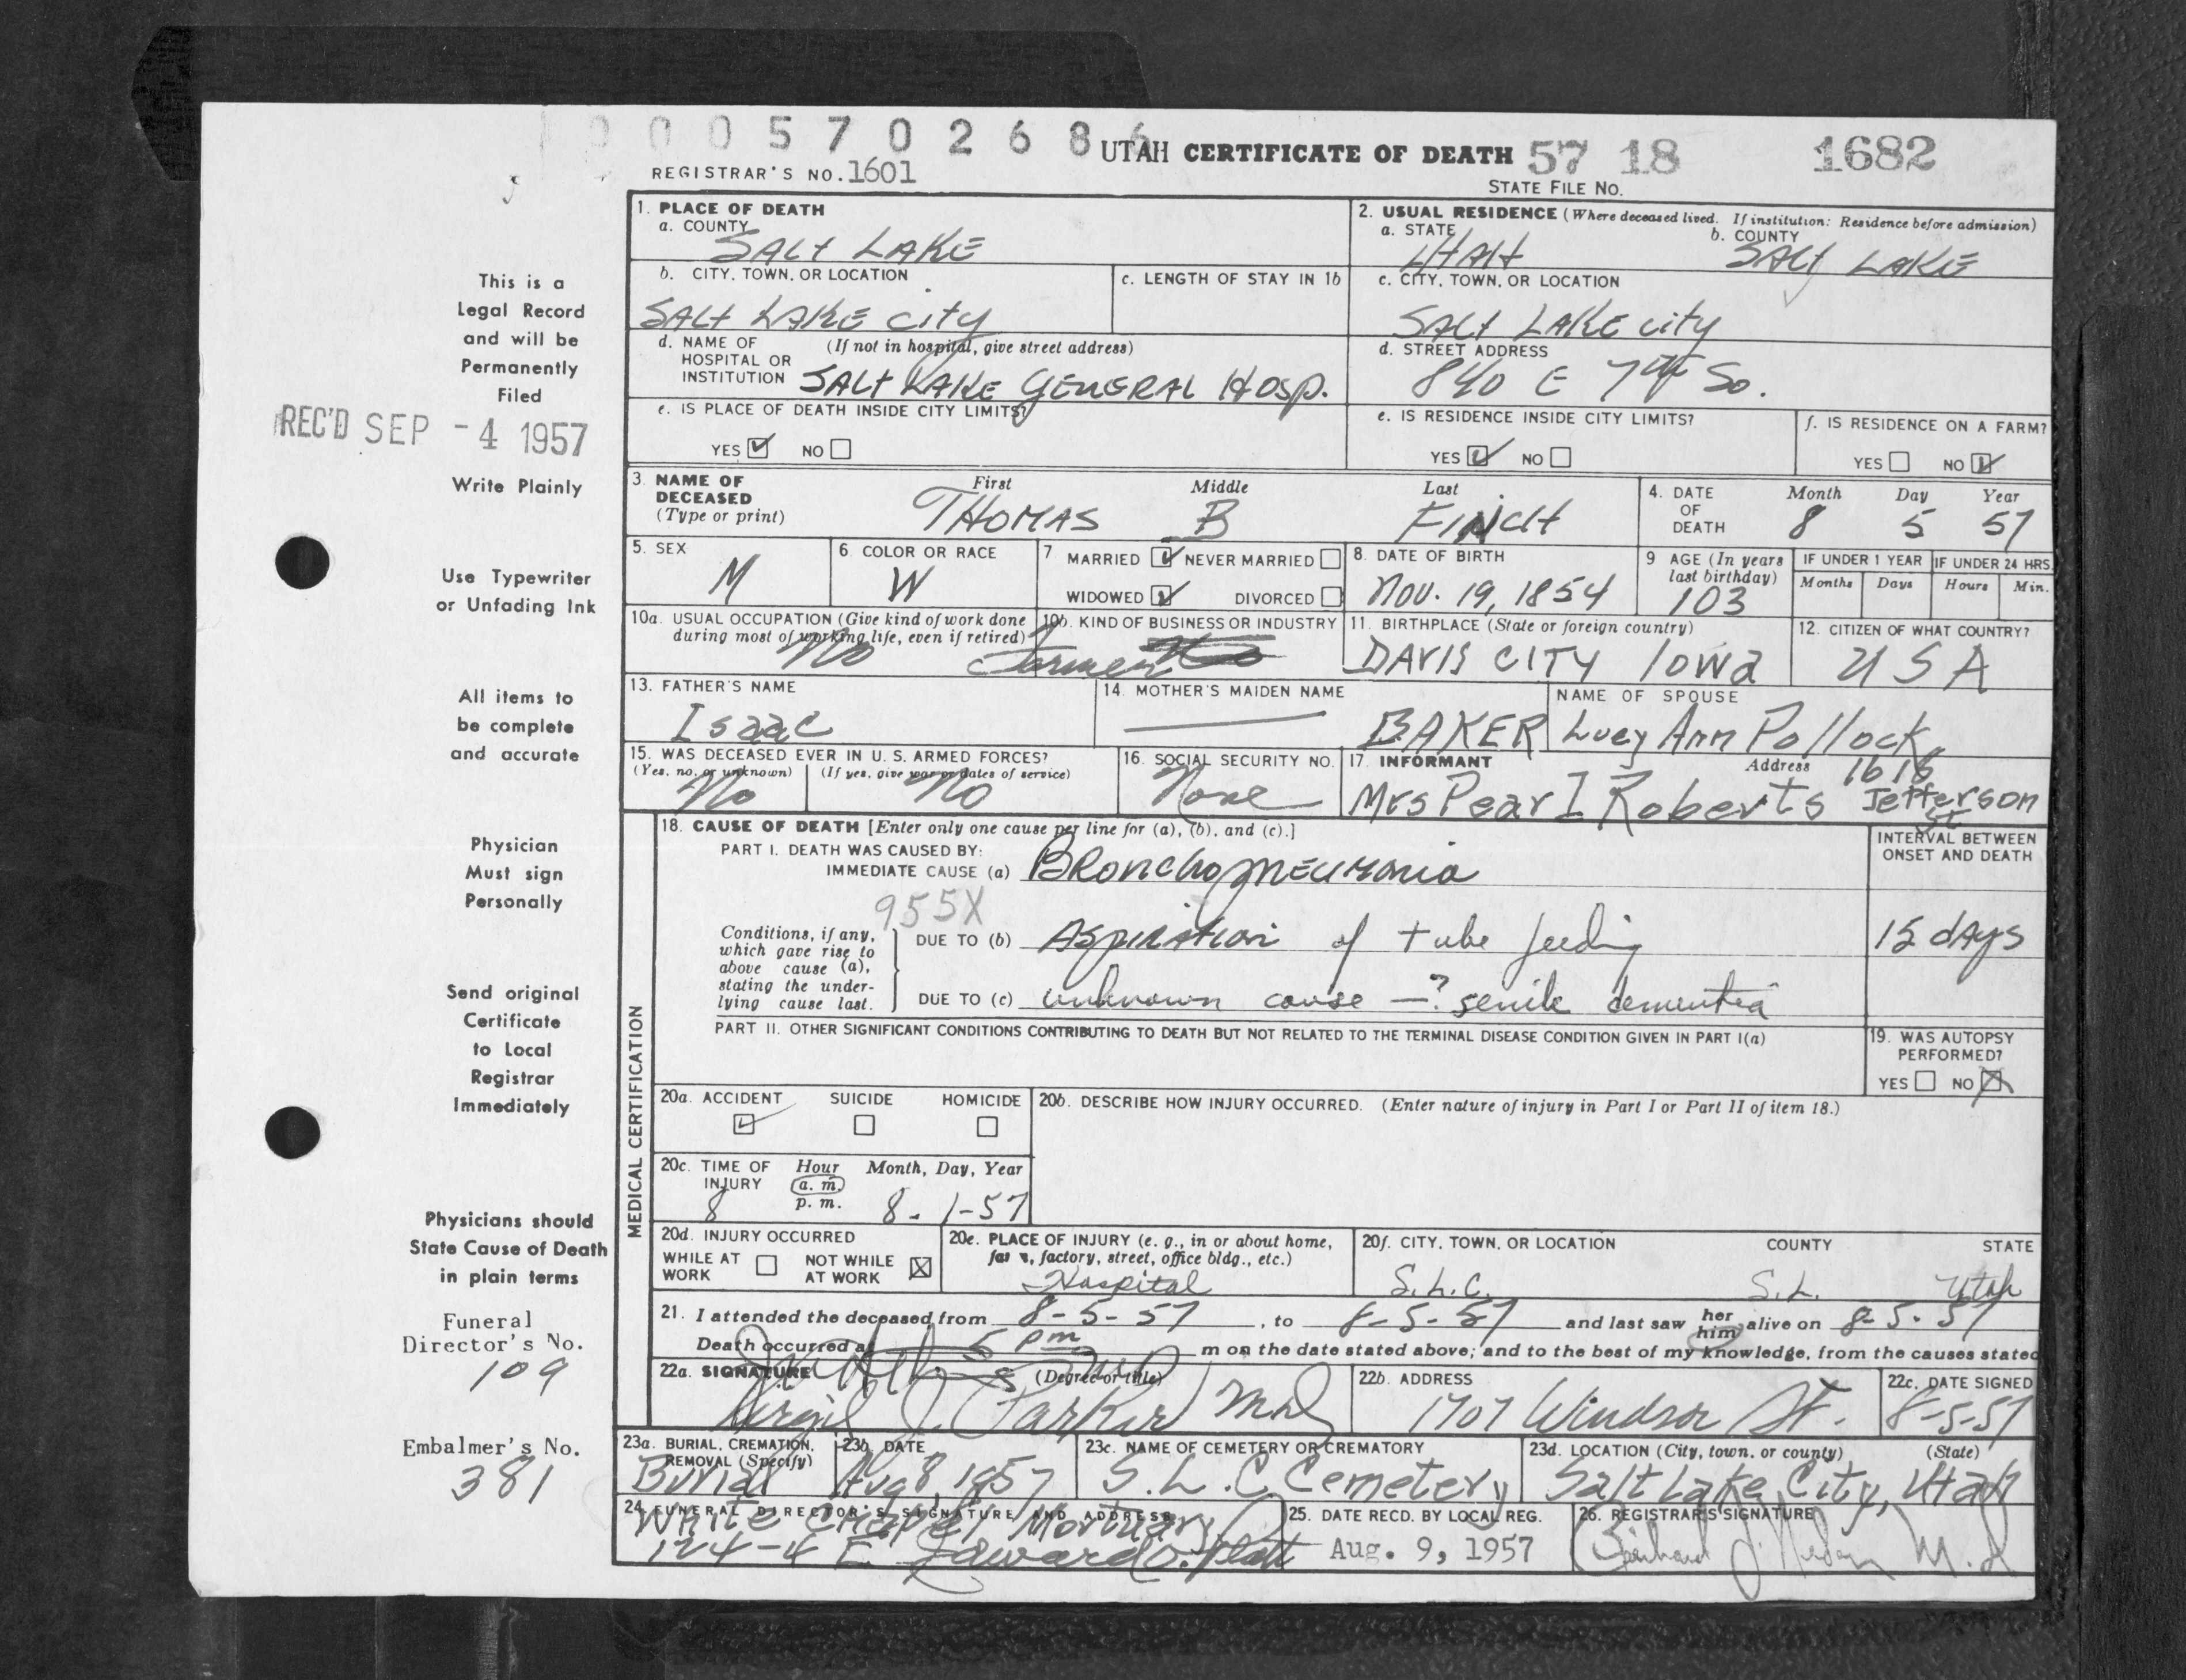 0 0 0 5 7 0 2 6 8 6
UTAH CERTIFICATE OF DEATH 57 18 1682
REGISTRAR'S NO. 1601
STATE FILE NO.
This is a
Legal Record
and will be
Permanently
Filed
REC'D SEP -4 1957
Write Plainly
Use Typewriter
or Unfading Ink
All items to
be complete
and accurate
Physician
Must sign
Personally
Send original
Certificate
to Local
Registrar
Immediately
Physicians should
State Cause of Death
in plain terms
Funeral
Director's No.
109
Embalmer's No.
381
1. PLACE OF DEATH
a. COUNTY
SALT LAKE
b. CITY, TOWN, OR LOCATION
SALT LAKE CITY
c. LENGTH OF STAY IN 1b
d. NAME OF (If not in hospital, give street address)
HOSPITAL OR
INSTITUTION SALT LAKE GENERAL HOSP.
e. IS PLACE OF DEATH INSIDE CITY LIMITS?
YES NO
2. USUAL RESIDENCE (Where deceased lived. If institution: Residence before admission)
a. STATE
UTAH
b. COUNTY
SALT LAKE
c. CITY, TOWN, OR LOCATION
SALT LAKE CITY
d. STREET ADDRESS
840 E 7th So.
e. IS RESIDENCE INSIDE CITY LIMITS?
YES NO
f. IS RESIDENCE ON A FARM?
YES NO
3. NAME OF
DECEASED
(Type or print)
First Middle Last
THOMAS B FINCH
4. DATE
OF
DEATH
Month Day Year
8 5 57
5. SEX
M
6. COLOR OR RACE
W
7 MARRIED NEVER MARRIED
WIDOWED DIVORCED
8. DATE OF BIRTH
NOV. 19, 1854
9 AGE (In years
last birthday)
103
IF UNDER 1 YEAR
Months Days
IF UNDER 24 HRS.
Hours Min.
10a. USUAL OCCUPATION (Give kind of work done
during most of working life, even if retired)
No Farmer
10b. KIND OF BUSINESS OR INDUSTRY
11. BIRTHPLACE (State or foreign country)
DAVIS CITY Iowa
12. CITIZEN OF WHAT COUNTRY?
U S A
13. FATHER'S NAME
Isaac
14. MOTHER'S MAIDEN NAME
BAKER
NAME OF SPOUSE
Lucy Ann Pollock
15. WAS DECEASED EVER IN U. S. ARMED FORCES?
(Yes, no, or unknown) (If yes, give war or dates of service)
No No
16. SOCIAL SECURITY NO.
None
17. INFORMANT Address
Mrs Pearl Roberts 1616 Jefferson St
MEDICAL CERTIFICATION
18. CAUSE OF DEATH [Enter only one cause per line for (a), (b), and (c).]
PART I. DEATH WAS CAUSED BY:
IMMEDIATE CAUSE (a) Bronchopneumonia
INTERVAL BETWEEN
ONSET AND DEATH
955X
Conditions, if any,
which gave rise to
above cause (a),
stating the under-
lying cause last.
DUE TO (b) Aspiration of tube feeding 15 days
DUE TO (c) unknown cause - ? senile dementia
PART II. OTHER SIGNIFICANT CONDITIONS CONTRIBUTING TO DEATH BUT NOT RELATED TO THE TERMINAL DISEASE CONDITION GIVEN IN PART I(a)
19. WAS AUTOPSY
PERFORMED?
YES NO
20a. ACCIDENT SUICIDE HOMICIDE
20b. DESCRIBE HOW INJURY OCCURRED. (Enter nature of injury in Part I or Part II of item 18.)
20c. TIME OF Hour Month, Day, Year
INJURY a. m.
p. m.
8 8-1-57
20d. INJURY OCCURRED
WHILE AT
WORK
NOT WHILE
AT WORK
20e. PLACE OF INJURY (e. g., in or about home,
farm, factory, street, office bldg., etc.)
Hospital
20f. CITY, TOWN, OR LOCATION COUNTY STATE
S.L.C. S.L. Utah
21. I attended the deceased from 8-5-57, to 8-5-57 and last saw her him alive on 8-5-57
Death occurred at 5 pm m on the date stated above; and to the best of my knowledge, from the causes stated
22a. SIGNATURE (Degree or title)
Virgil J. Parker MD
22b. ADDRESS
1707 Windsor St.
22c. DATE SIGNED
8-5-57
23a. BURIAL, CREMATION,
REMOVAL (Specify)
Burial
23b. DATE
Aug 8, 1957
23c. NAME OF CEMETERY OR CREMATORY
S.L.C Cemetery
23d. LOCATION (City, town, or county) (State)
Salt Lake City, Utah
24. FUNERAL DIRECTOR'S SIGNATURE AND ADDRESS
White Chapel Mortuary
124-4 E. Edward O. Platt
25. DATE RECD. BY LOCAL REG.
Aug. 9, 1957
26. REGISTRAR'S SIGNATURE
M.D